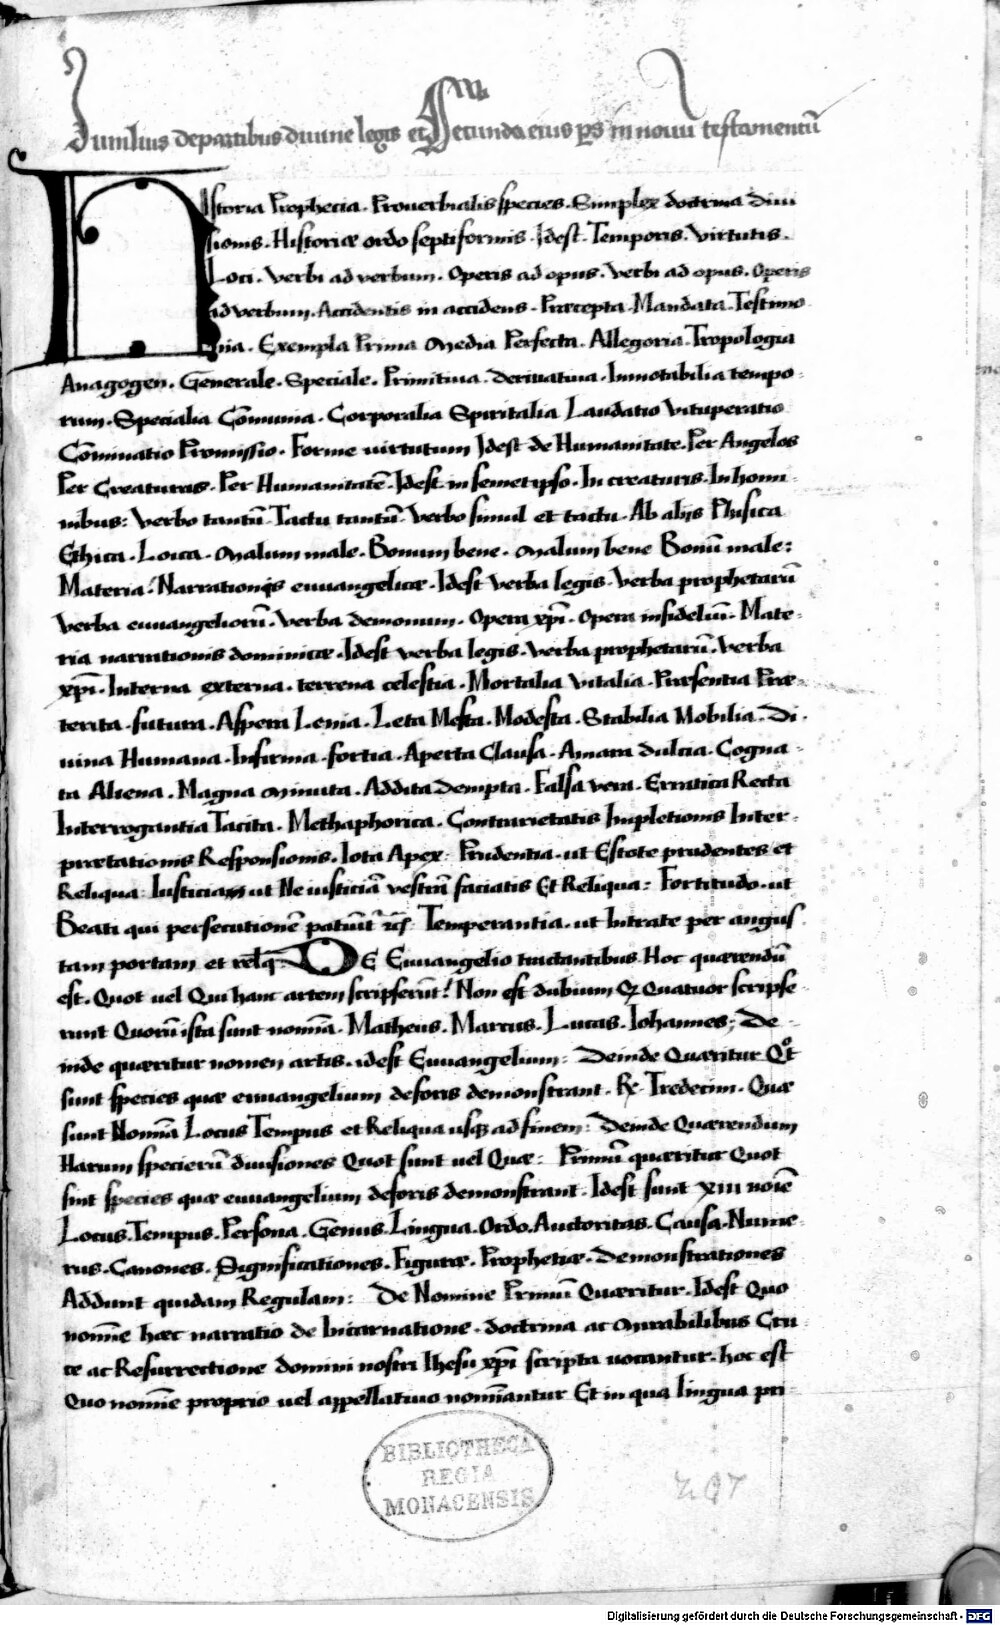 Junilius de partibus divine legis et Secunda eius ps in novu testamentū
HIstoria Prophecia. Prouerbialis species. Simplex doctrina Diui
sionis. Historicæ ordo septiformis. Idest. Temporis. Virtutis.
Loci. Verbi ad verbum. Operis ad opus. Verbi ad opus. Operis
ad verbum. Accidentis in accidens. Præcepta. Mandata. Testimo
nia. Exempla Prima Media Perfecta. Allegoria. Tropologia
Anagogen. Generale. Speciale. Primitiua. Deriuatiua. Inmotabilia tempo.
rum. Specialia Cōmunia. Corporalia Spiritalia Laudatio Vituperatio
Cōminatio Promissio. Forme uirtutum Idest de Humanitate. Per Angelos
Per Creaturas. Per Humanitatē. Idest in semetipso. In creaturis. In homi-
nibus: Verbo tantū. Tactu tantū. Verbo simul et tactu. Ab alijs Phisica
Ethica. Loica. Malum male. Bonum bene. Malum bene Bonū male:
Materia. Narrationis euuangelicæ. Idest Verba legis. Verba prophetarū
Verba euuangeliorū. Verba demonum. Opera xp̄i. Opera infideliū. Mate-
ria narrationis dominicæ. Idest verba legis. Verba prophetarū. Verba
xp̄i. Interna externa. terrena celestia. Mortalia Vitalia. Præsentia Præ
terita. futura. Aspera Lenia. Leta Mesta. Modesta. Stabilia Mobilia. Di.
uina Humana. Infirma. fortia. Aperta Clausa. Amara dulcia. Cogna-
ta Aliena. Magna Minuta. Addita Dempta. Falsa vera. Erratica Recta
Interrogantia Tacita. Methaphorica. Contrarietatis Impletionis Inter-
prætationis Responsionis. Iota Apex: Prudentia. ut Estote prudentes et
Reliqua: Iusticia ut Ne iusticiā vestrā faciatis Et Reliqua: Fortitudo. ut
Beati qui persecutionē patiūt Temperantia. ut Intrate per angus
tam portam et relq̄: DE Euuangelio tractantibus. Hoc quærendū
est. Quot uel Qui hanc artem scripserūt? Non est dubium Quatuor scripse
runt Quorū ista sunt nomīa. Matheus. Marcus. Lucas. Iohannes; De-
inde quæritur nomen artis. idest Euuangelium: Deinde Quæritur Qot
sunt species quæ euuangelium deforis demonstrant. Rx Tredecim. Quæ
sunt Nomīa Locus Tempus et Reliqua usqꝫ ad finem: Deinde Quærendum
Harum specierū diuisiones Quot sunt uel Quæ: Primū quæritur Quot
sint species quæ euuangelium deforis demonstrant. Idest sunt XIII noīe
Locus. Tempus. Persona. Genus. Lingua. Ordo. Auctoritas. Causa. Nume
rus. Canones. Significationes. Figuræ. Prophetiæ. Demonstrationes
Addunt quidam Regulam: De Nomine Primū Quæritur. Idest Quo
nomīe hæc narratio de Incarnatione. doctrina ac Mirabilibus Cru
ce ac Resurrectione domini nostri Ihesu xp̄i scripta uocantur. hoc est
Quo nomīe proprio uel appellatiuo nomīantur Et in qua lingua pri
BIBLIOTHECA
REGIA
MONACENSIS
Digitalisierung gefördert durch die Deutsche Forschungsgemeinschaft - DFG